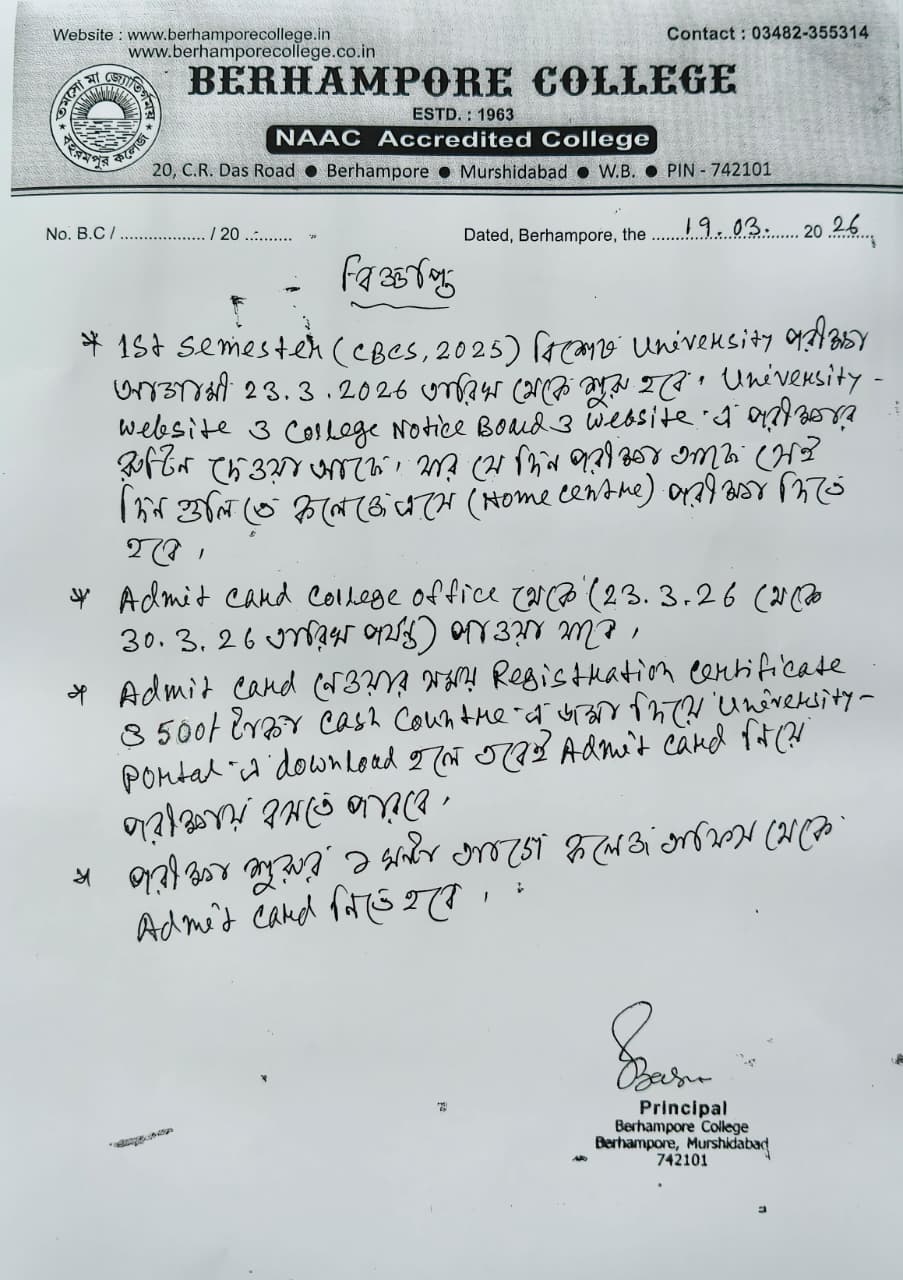 Website : www.berhamporecollege.in
www.berhamporecollege.co.in
Contact : 03482-355314
BERHAMPORE COLLEGE
ESTD. : 1963
NAAC Accredited College
তমসো মা জ্যোতির্গময়
বহরমপুর কলেজ
20, C.R. Das Road ● Berhampore ● Murshidabad ● W.B. ● PIN - 742101
No. B.C / .................. / 20 ..........
Dated, Berhampore, the ......19.03....... 20 26
বিজ্ঞপ্তি
* 1st Semester (CBCS, 2025) University পরীক্ষা
আগামী 23.3.2026 তারিখ থেকে শুরু হবে। University-
Website ও College Notice Board ও Website-এ পরীক্ষার
রুটিন দেওয়া আছে। যার যে দিন পরীক্ষা আছে সেই
দিন গুলিতে কলেজে এসে (Home Centre) পরীক্ষা দিতে
হবে।
* Admit Card College office থেকে (23.3.26 থেকে
30.3.26 তারিখ পর্যন্ত) পাওয়া যাবে।
* Admit Card নেওয়ার সময় Registration Certificate
ও 500/- টাকা Cash Countre-এ জমা দিয়ে University-
Portal-এ download হলে তবেই Admit Card নিয়ে
পরীক্ষায় বসতে পারবে।
* পরীক্ষা শুরুর ১ ঘন্টা আগে কলেজ অফিস থেকে
Admit Card নিতে হবে।
Principal
Berhampore College
Berhampore, Murshidabad
742101